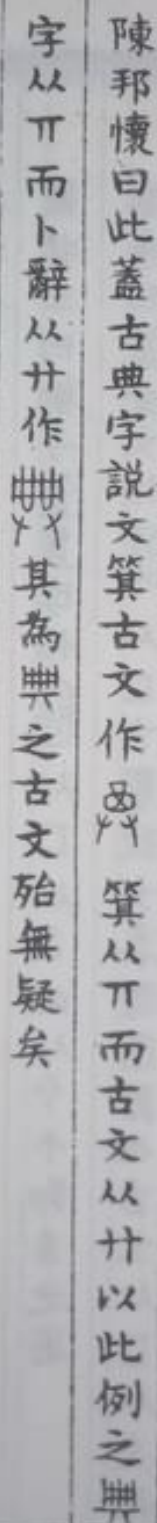 陳邦懷曰此蓋古典字説文箕古文作 箕从丌而古文从廾以此例之𠔓
字从丌而卜辭从廾作 其為𠔓之古文殆無疑矣